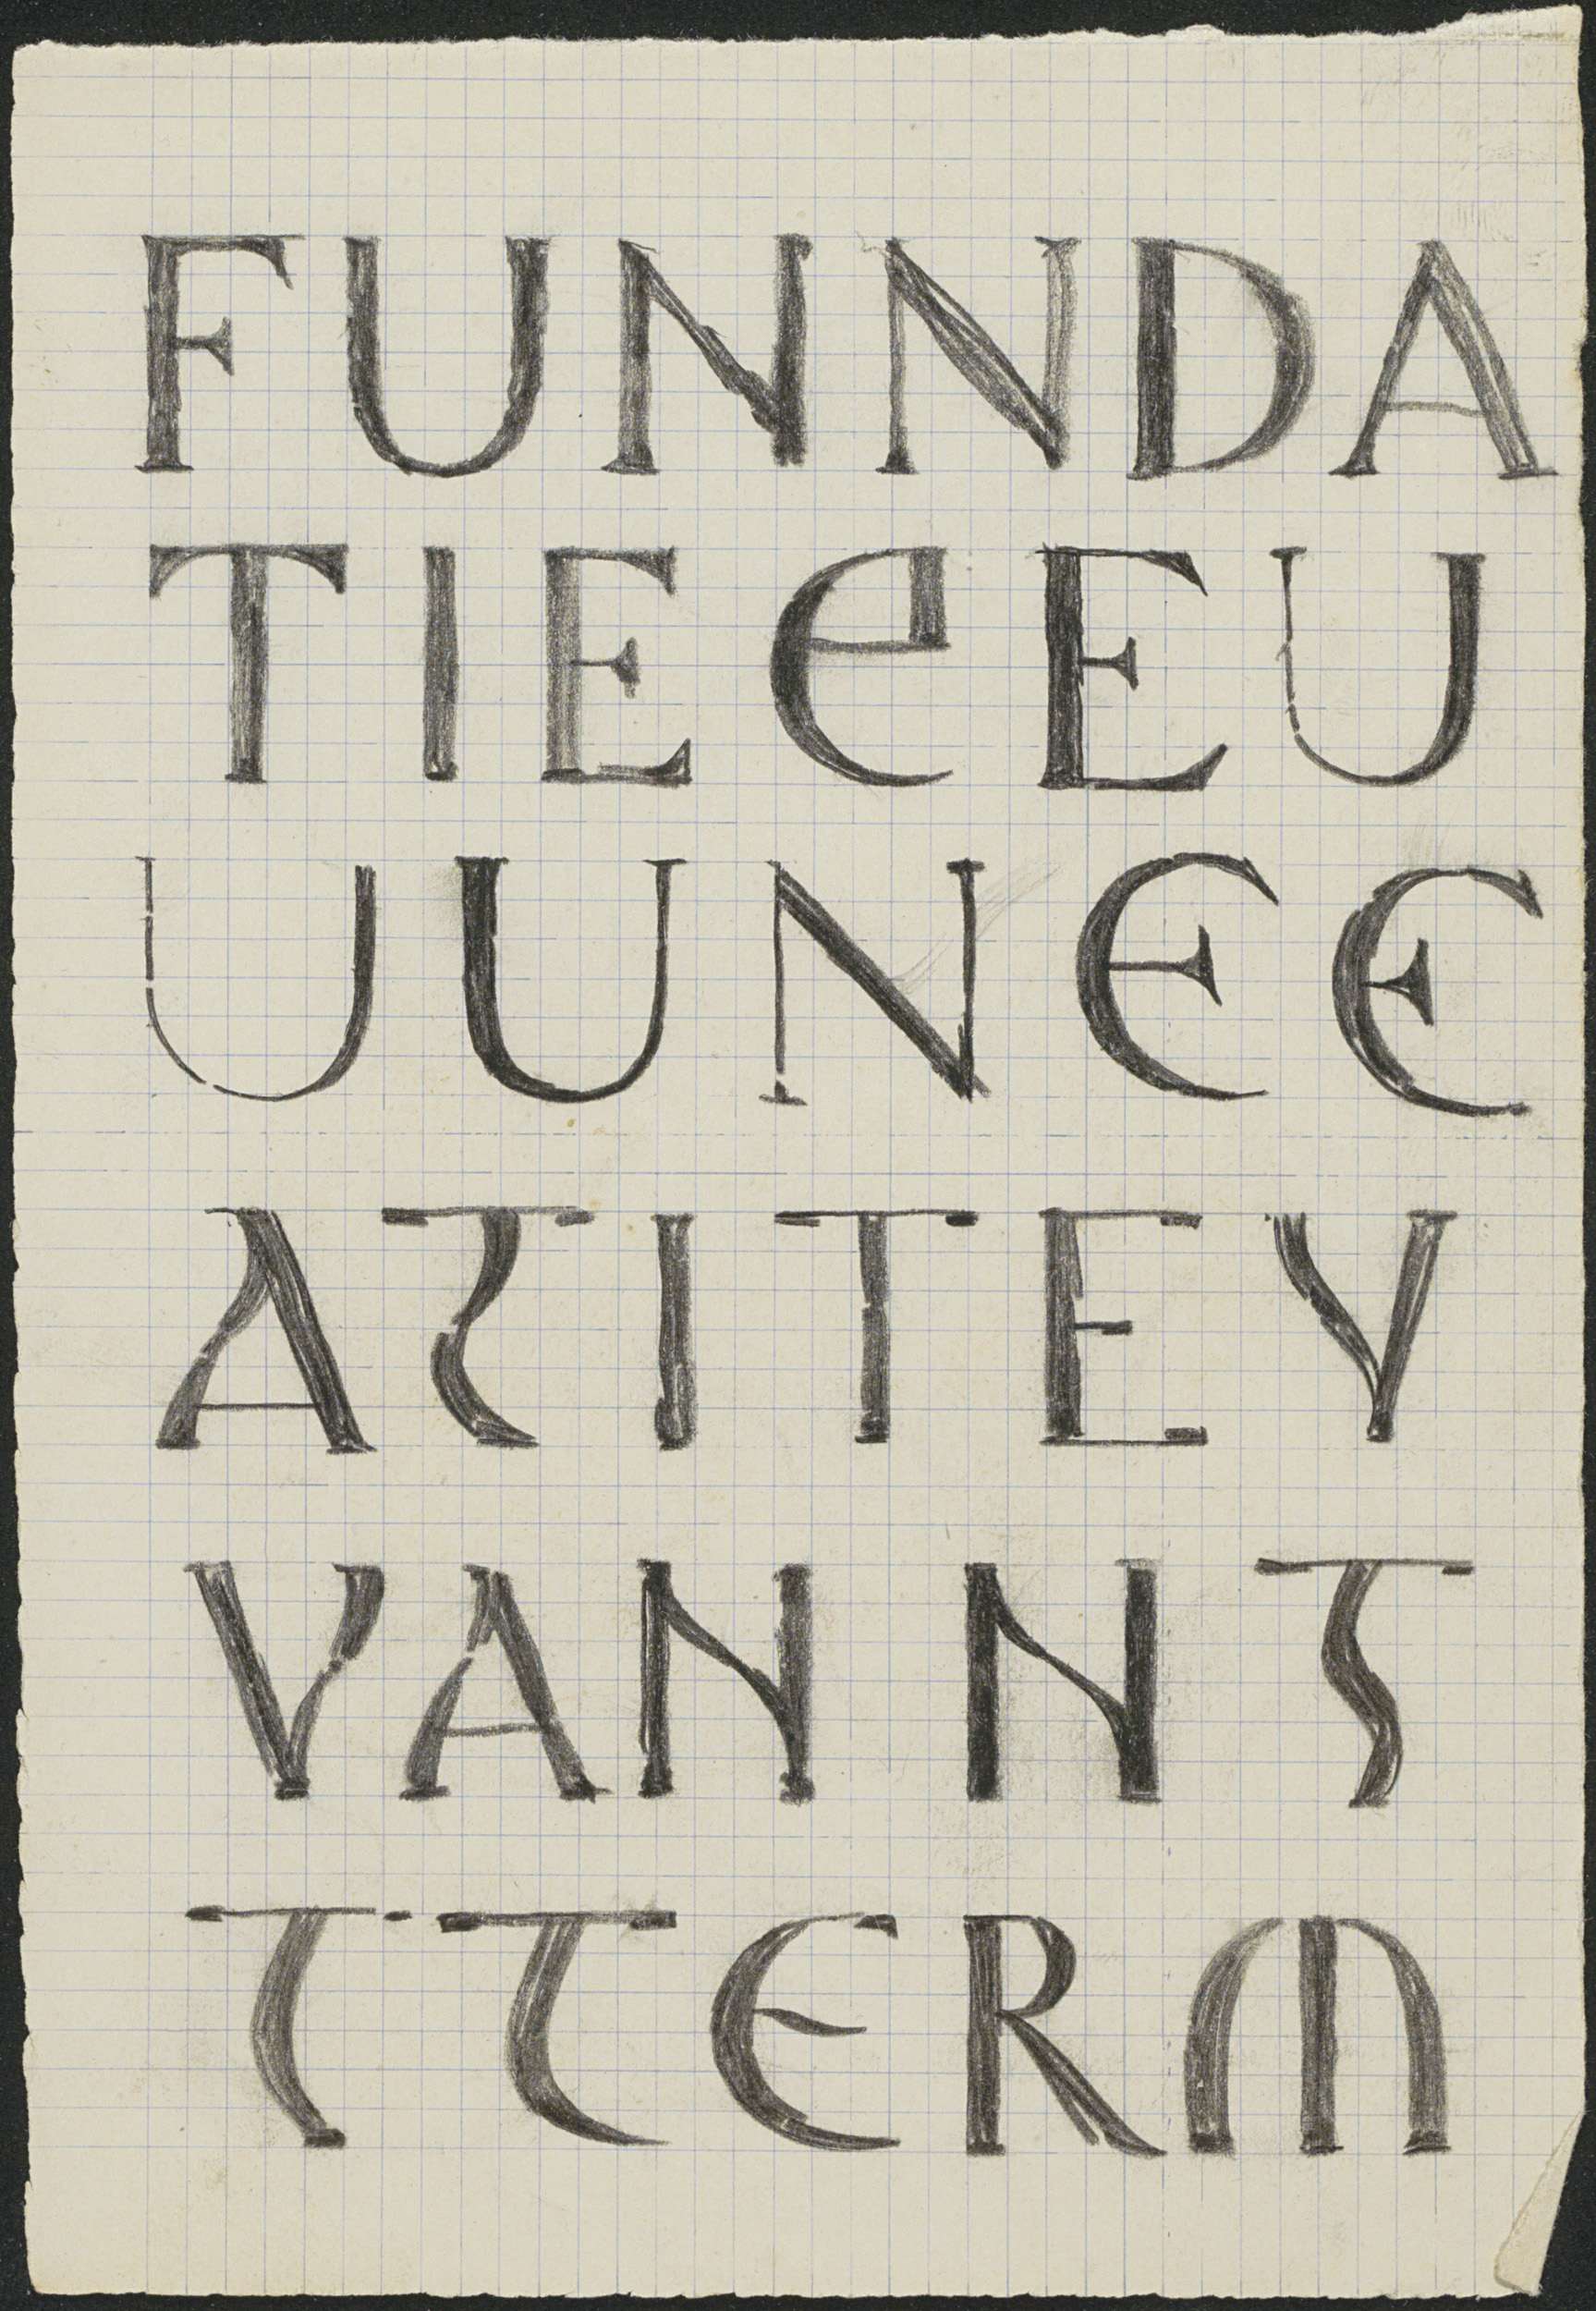 FUNNDA
TIEEEU
UUNEE
ATITEV
VANNT
TTERM